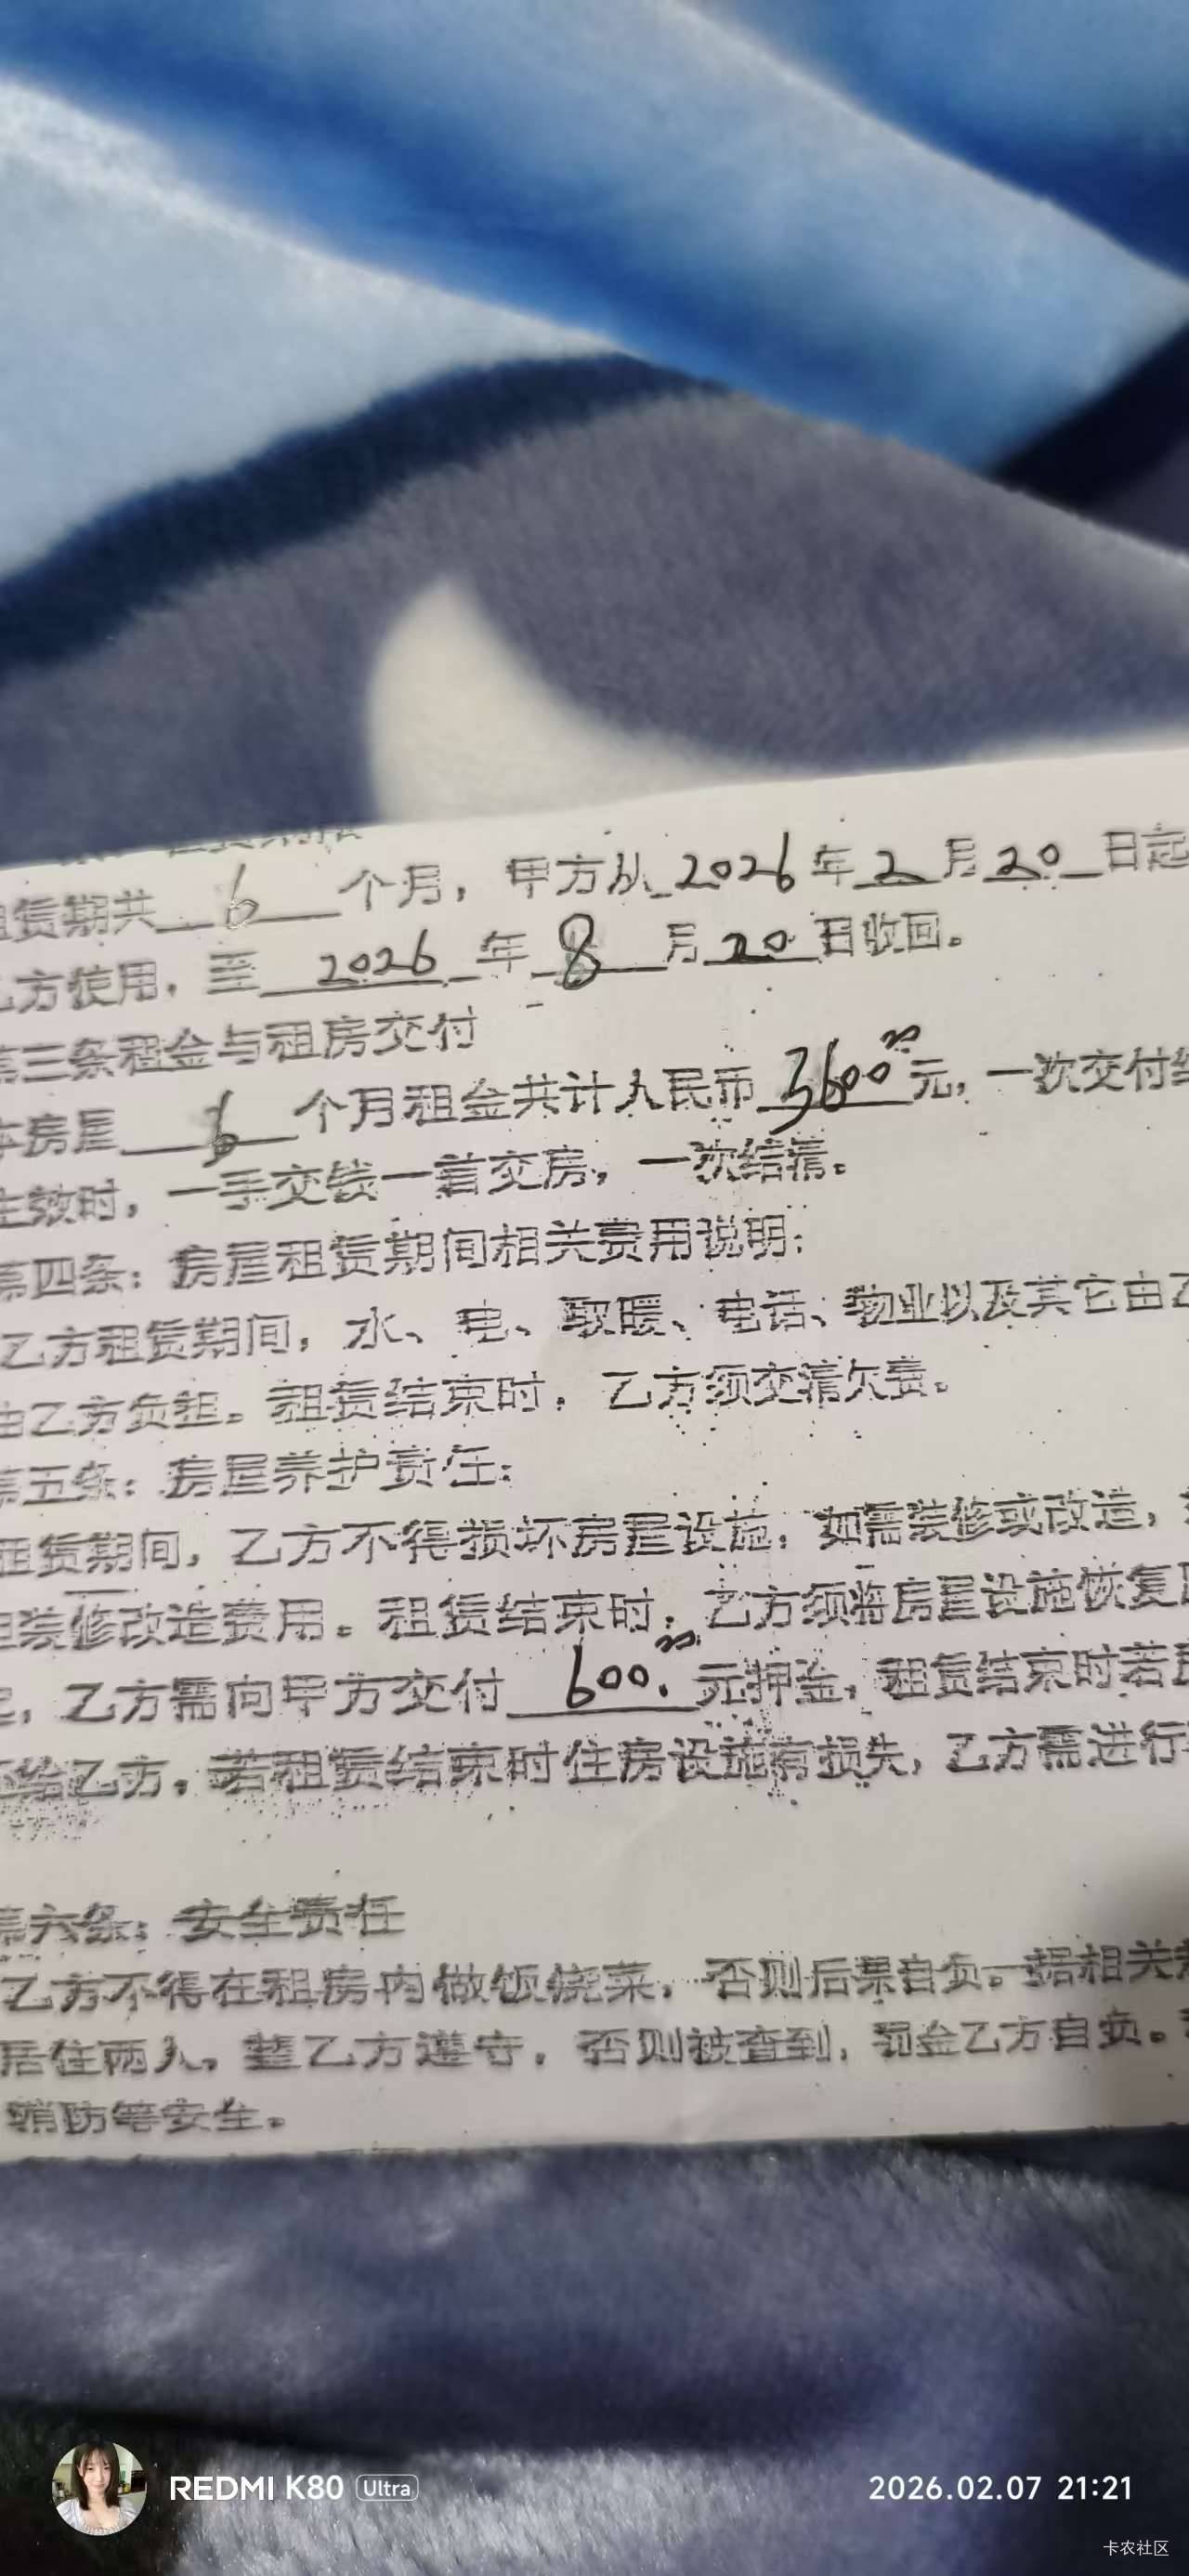 租赁期共 6 个月，甲方从 2026 年 2 月 20 日起
乙方使用，至 2026 年 8 月 20 日收回。
第三条租金与租房交付
本房屋 6 个月租金共计人民币 3600 元，一次交付
生效时，一手交钱一着交房，一次结清。
第四条：房屋租赁期间相关费用说明：
乙方租赁期间，水、电、取暖、电话、物业以及其它由乙
由乙方负担。租赁结束时，乙方须交清欠费。
第五条：房屋养护责任：
租赁期间，乙方不得损坏房屋设施，如需装修或改造，
担装修改造费用。租赁结束时，乙方须将房屋设施恢复
，乙方需向甲方交付 600. 元押金，租赁结束时若
还给乙方，若租赁结束时住房设施有损失，乙方需进行
第六条：安全责任
乙方不得在租房内做饭烧菜，否则后果自负。据相关
居住两人，望乙方遵守，否则被查到，罚金乙方自负。
消防等安全。
REDMI K80 Ultra
2026.02.07 21:21
卡农社区